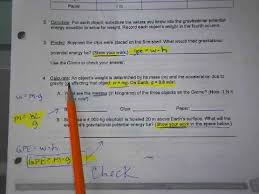 3. Calculate: For each object, substitute the values you know into the gravitational potential
energy equation to solve for weight. Record each object's weight in the fourth column.
3. Predict: Suppose the clips were placed on the 5cm What would their gravitational
potential energy be? (Show your work) gpe = w·h
Use the Gizmo to check your answer.
4. Calculate: An object's weight is determined by its mass (m) and the acceleration due to
gravity affecting that object: w = mg. On Earth, g = 9.8 m/s².
w = m·g
A. What are the masses (in kilograms) of the three objects on the Gizmo? (Note: 1 N = 1
Clips
m = w/g
B. Suppose a 4,000-kg elephant is hoisted 20 m above Earth's surface. What will the
gravitational potential energy be? (Show your work in space below.)
GPE = w·h
GPE = m·g
Check